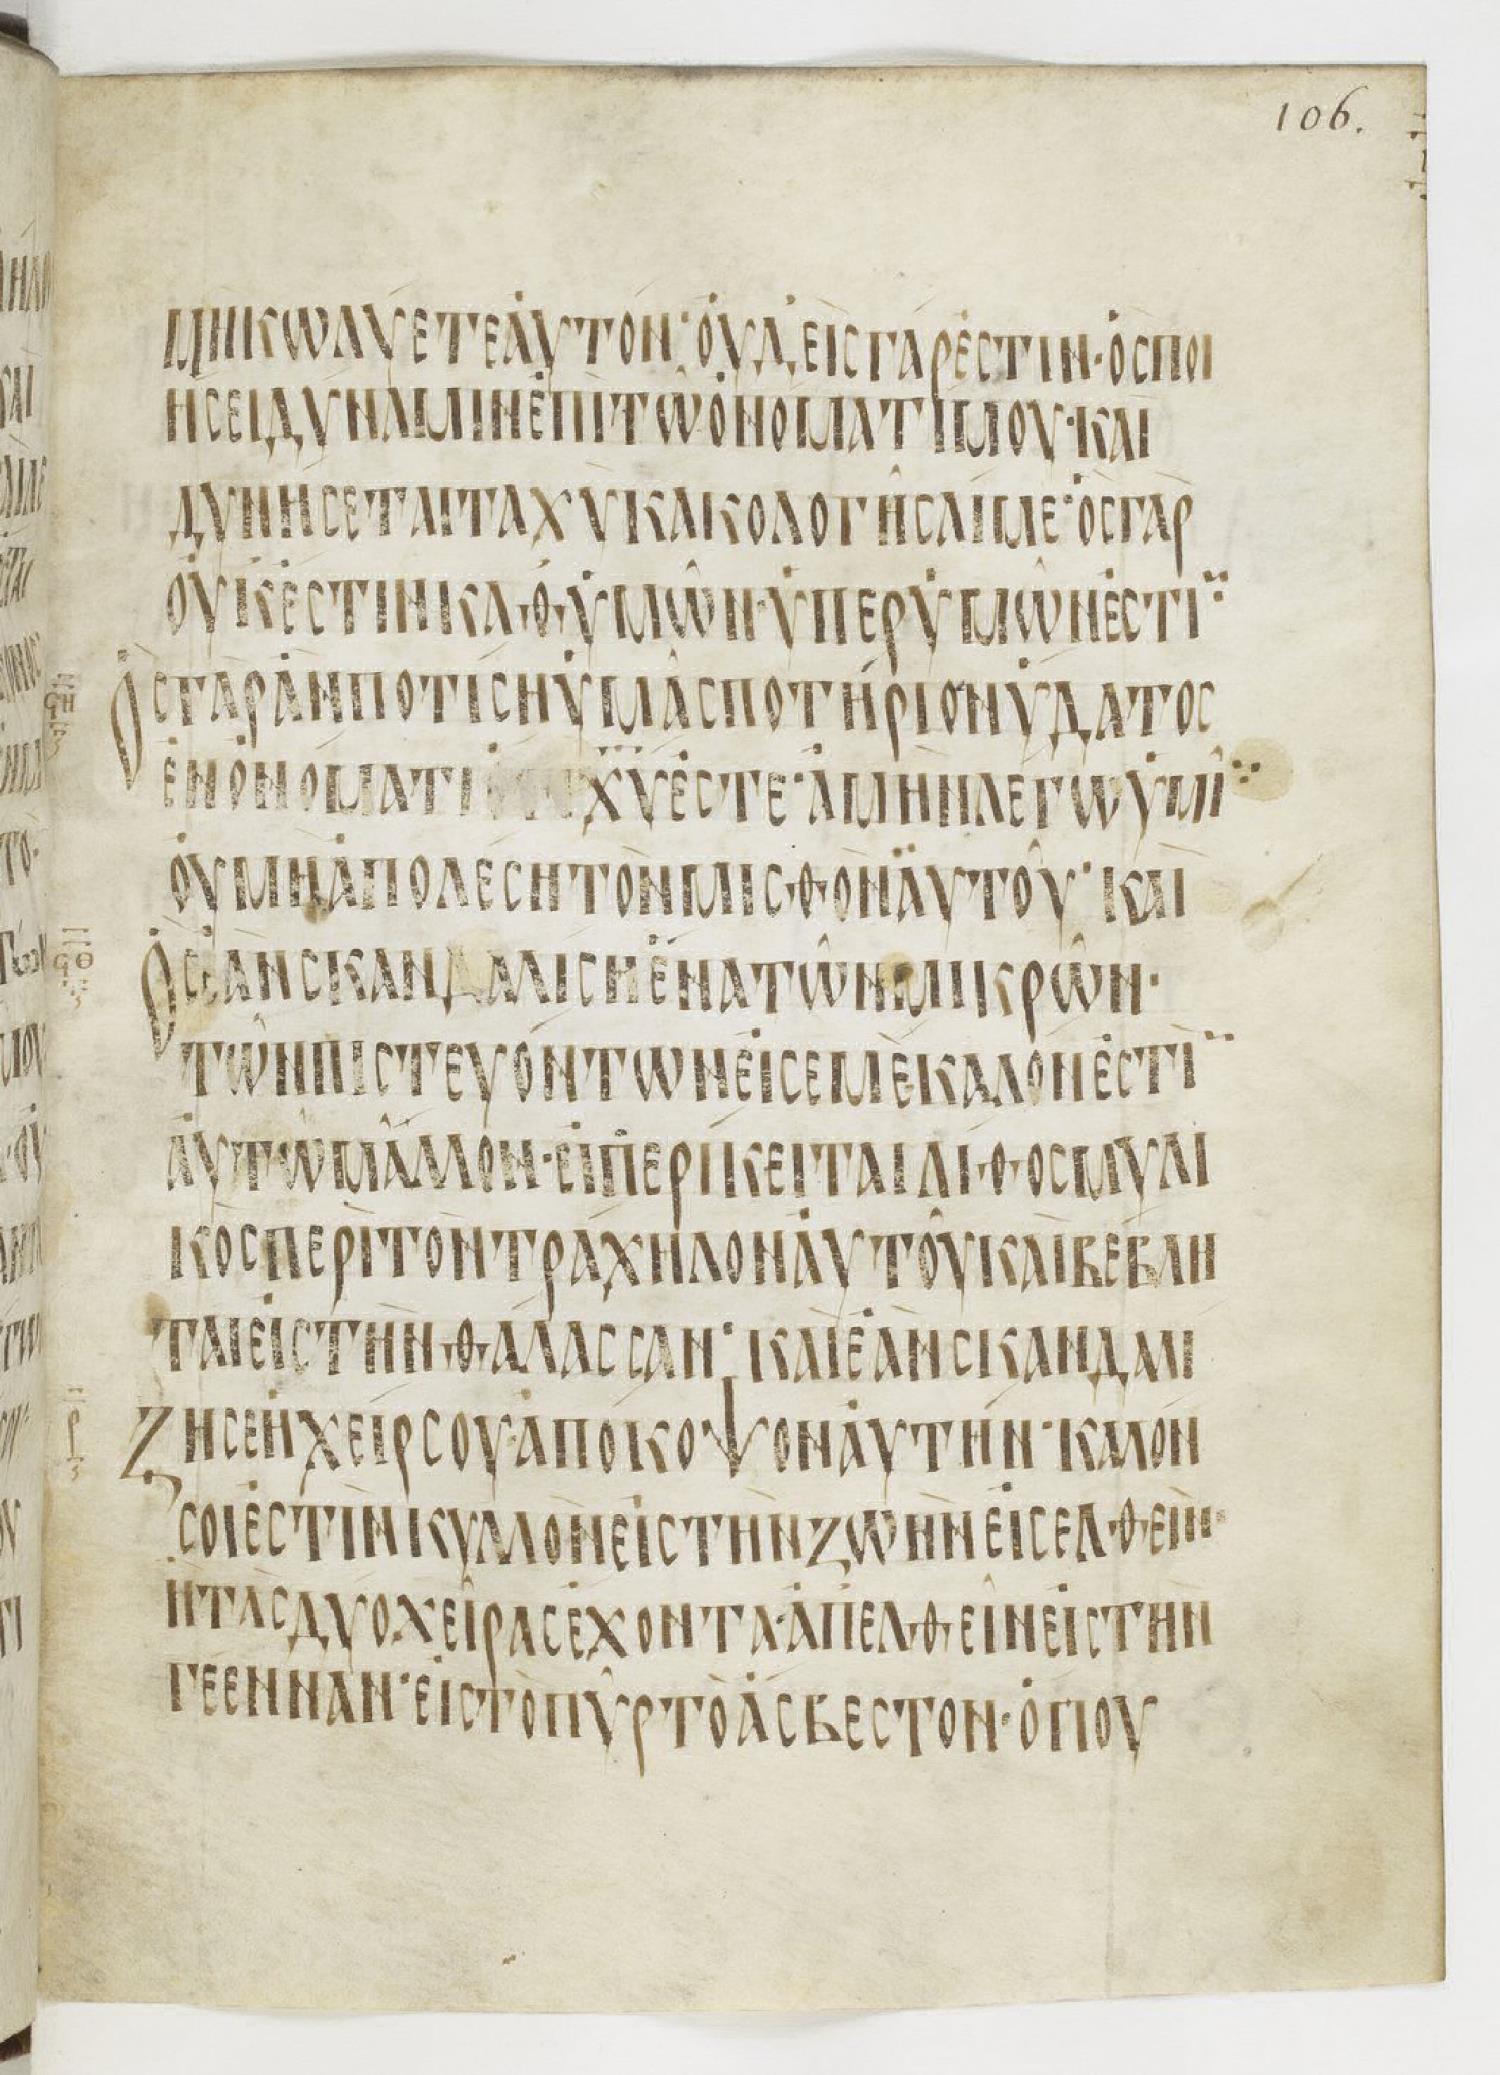 106.
ΜΗΚΩΛΥΕΤΕΑΥΤΟΝ· ΟΥΔΕΙΣΓΑΡΕΣΤΙΝ· ΟΣΠΟΙ
ΗΣΕΙΔΥΝΑΜΙΝΕΠΙΤΩΟΝΟΜΑΤΙΜΟΥ· ΚΑΙ
ΔΥΝΗΣΕΤΑΙΤΑΧΥΚΑΚΟΛΟΓΗΣΑΙΜΕ· ΟΣΓΑΡ
ΟΥΚΕΣΤΙΝΚΑΘΥΜΩΝ· ΥΠΕΡΥΜΩΝΕΣΤΙ
ΟΣΓΑΡΑΝΠΟΤΙΣΗΥΜΑΣΠΟΤΗΡΙΟΝΥΔΑΤΟΣ
ΕΝΟΝΟΜΑΤΙ ΧΥΕΣΤΕ· ΑΜΗΝΛΕΓΩΥΜΙ
ΟΥΜΗΑΠΟΛΕΣΗΤΟΝΜΙΣΘΟΝΑΥΤΟΥ· ΚΑΙ
ϘΘ
ΟΣΕΑΝΣΚΑΝΔΑΛΙΣΗΕΝΑΤΩΝΜΙΚΡΩΝ·
ΤΩΝΠΙΣΤΕΥΟΝΤΩΝΕΙΣΕΜΕΚΑΛΟΝΕΣΤΙ
ΑΥΤΩΜΑΛΛΟΝ· ΕΙΠΕΡΙΚΕΙΤΑΙΛΙΘΟΣΜΥΛΙ
ΚΟΣΠΕΡΙΤΟΝΤΡΑΧΗΛΟΝΑΥΤΟΥΚΑΙΒΕΒΛΗ
ΤΑΙΕΙΣΤΗΝΘΑΛΑΣΣΑΝ· ΚΑΙΕΑΝΣΚΑΝΔΑΛΙ
ΖΗΣΕΗΧΕΙΡΣΟΥ· ΑΠΟΚΟΨΟΝΑΥΤΗΝ· ΚΑΛΟΝ
ΣΟΙΕΣΤΙΝΚΥΛΛΟΝΕΙΣΤΗΝΖΩΗΝΕΙΣΕΛΘΕΙΝ·
ΗΤΑΣΔΥΟΧΕΙΡΑΣΕΧΟΝΤΑ· ΑΠΕΛΘΕΙΝΕΙΣΤΗΝ
ΓΕΕΝΝΑΝ· ΕΙΣΤΟΠΥΡΤΟΑΣΒΕΣΤΟΝ· ΟΠΟΥ